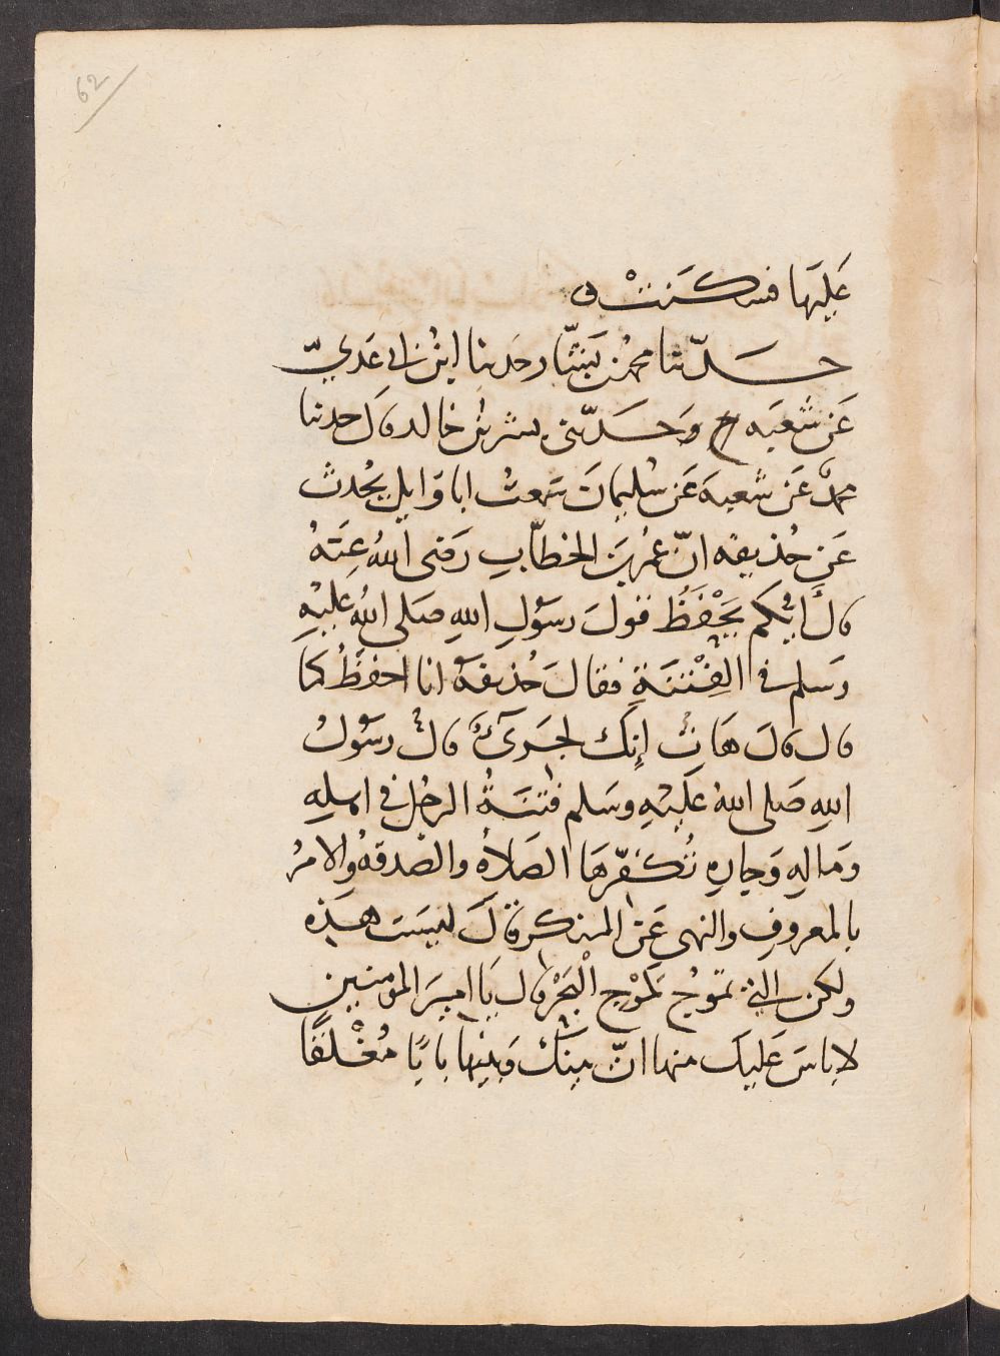 62
عَلَيهَا فسكَنتْ ه
حَدّثنا محمد بن بَشّار حَدثنا ابنُ ابى عَدِيّ
عَن شعْبَه ح وَحَدّثنى بشر بنُ خالد قالَ حدثنا
محمدٌ عَن شعبهَ عَن سُليمانَ سَمعتُ ابا وَايلٍ يُحدثُ
عَن حُذيفه انّ عُمر بنَ الخطّابِ رَضى اللهُ عَنهُ
قالَ ايُّكم يَحْفَظُ قولَ رسوُلِ اللهِ صَلى اللهُ عَليْهِ
وَسَلم فى الفِتْنَةِ فقالَ حُذيفهُ انا احفظُ كما
قال قالَ هَاتِ إنكَ لجَرىٌ قالَ رسوُلُ
اللهِ صَلى اللهُ عَليْهِ وسَلم فتنَةُ الرجُل فى اهلِهِ
وَمَالِهِ وَجارِهِ تُكَفّرهَا الصَلاةُ والصَدقهُ والامرُ
بالمعروفِ والنهى عَن المنكر قالَ ليسَت هَذِه
ولكن التى تموُجُ كَموْج الْبَحْر قال يَا اميرَ المؤمنين
لا باسَ عَليكَ منها انّ بينكَ وَبينها بابًا مُغْلقًا